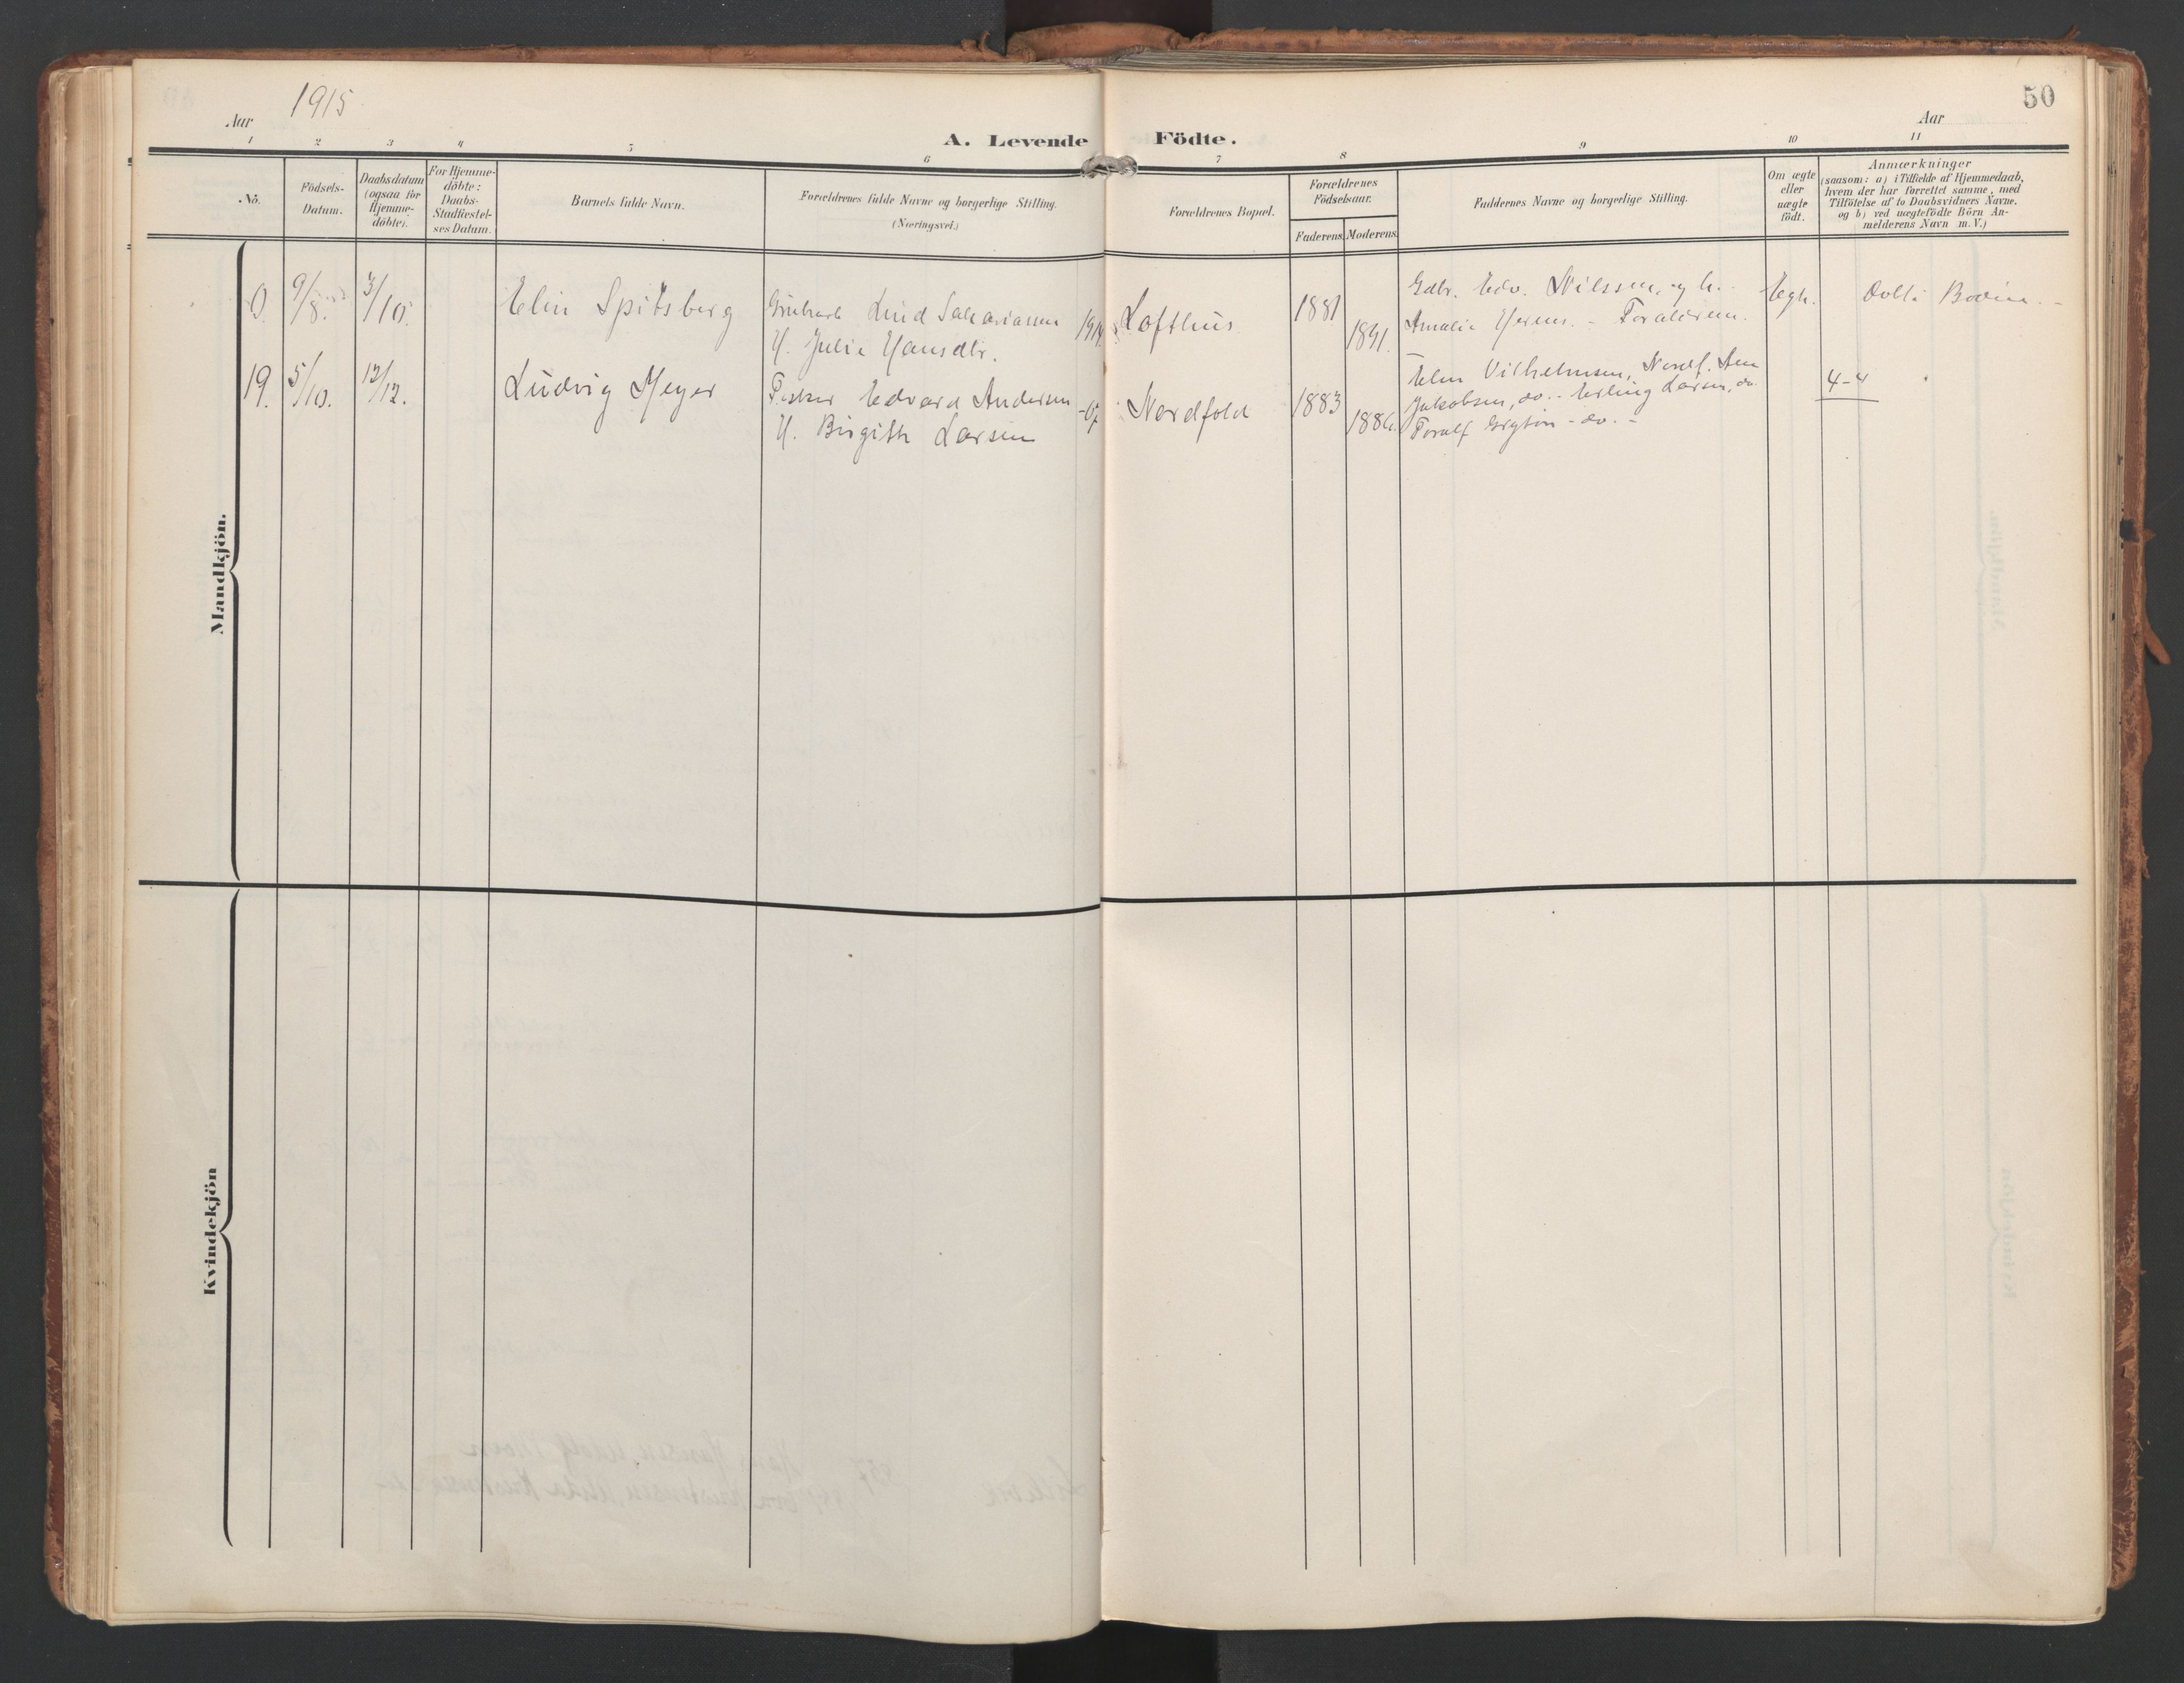 Aar 1915
50
Aar
1 2 3 4 5 6 7 8 9 10 11
A. Levende Födte.
No.
Födsels-
Datum.
Daabsdatum
(ogsaa for
Hjemme-
döbte).
For Hjemme-
döbte:
Daabs-
Stadfæstel-
ses Datum.
Barnets fulde Navn.
Forældrenes fulde Navne og borgerlige Stilling.
(Næringsvei.)
Forældrenes Bopæl.
Forældrenes
Födselsaar.
Faderens. Moderens.
Faddernes Navne og borgerlige Stilling.
Om ægte
eller
uægte
födt.
Anmærkninger
(saasom: a) i Tilfælde af Hjemmedaab,
hvem der har forrettet samme, med
Tilföielse af to Daabsvidners Navne.
og b) ved uægtefödte Börn An-
melderens Navn m. V.)
Mandkjön.
0. 9/8. 3/10. Elin Spitsberg
Knud Sakariassen
H. Julie Hansdtr.
1914 Lofthus 1881
1891.
Gdbr. Edv. Nilssen, og h.
Amalie - Forældrene.
Egte.
Bodin. -
19. 5/10. 12/12. Ludvig Meyer
Fisker Edvard Andersen
H. Birgith Larsen
-07 Nordfold 1883
1886.
Vilhelmsen, Nordf.
Jakobsen, do. - Erling Larsen, do.
Toralf - do. -
4-4
Kvindekjön